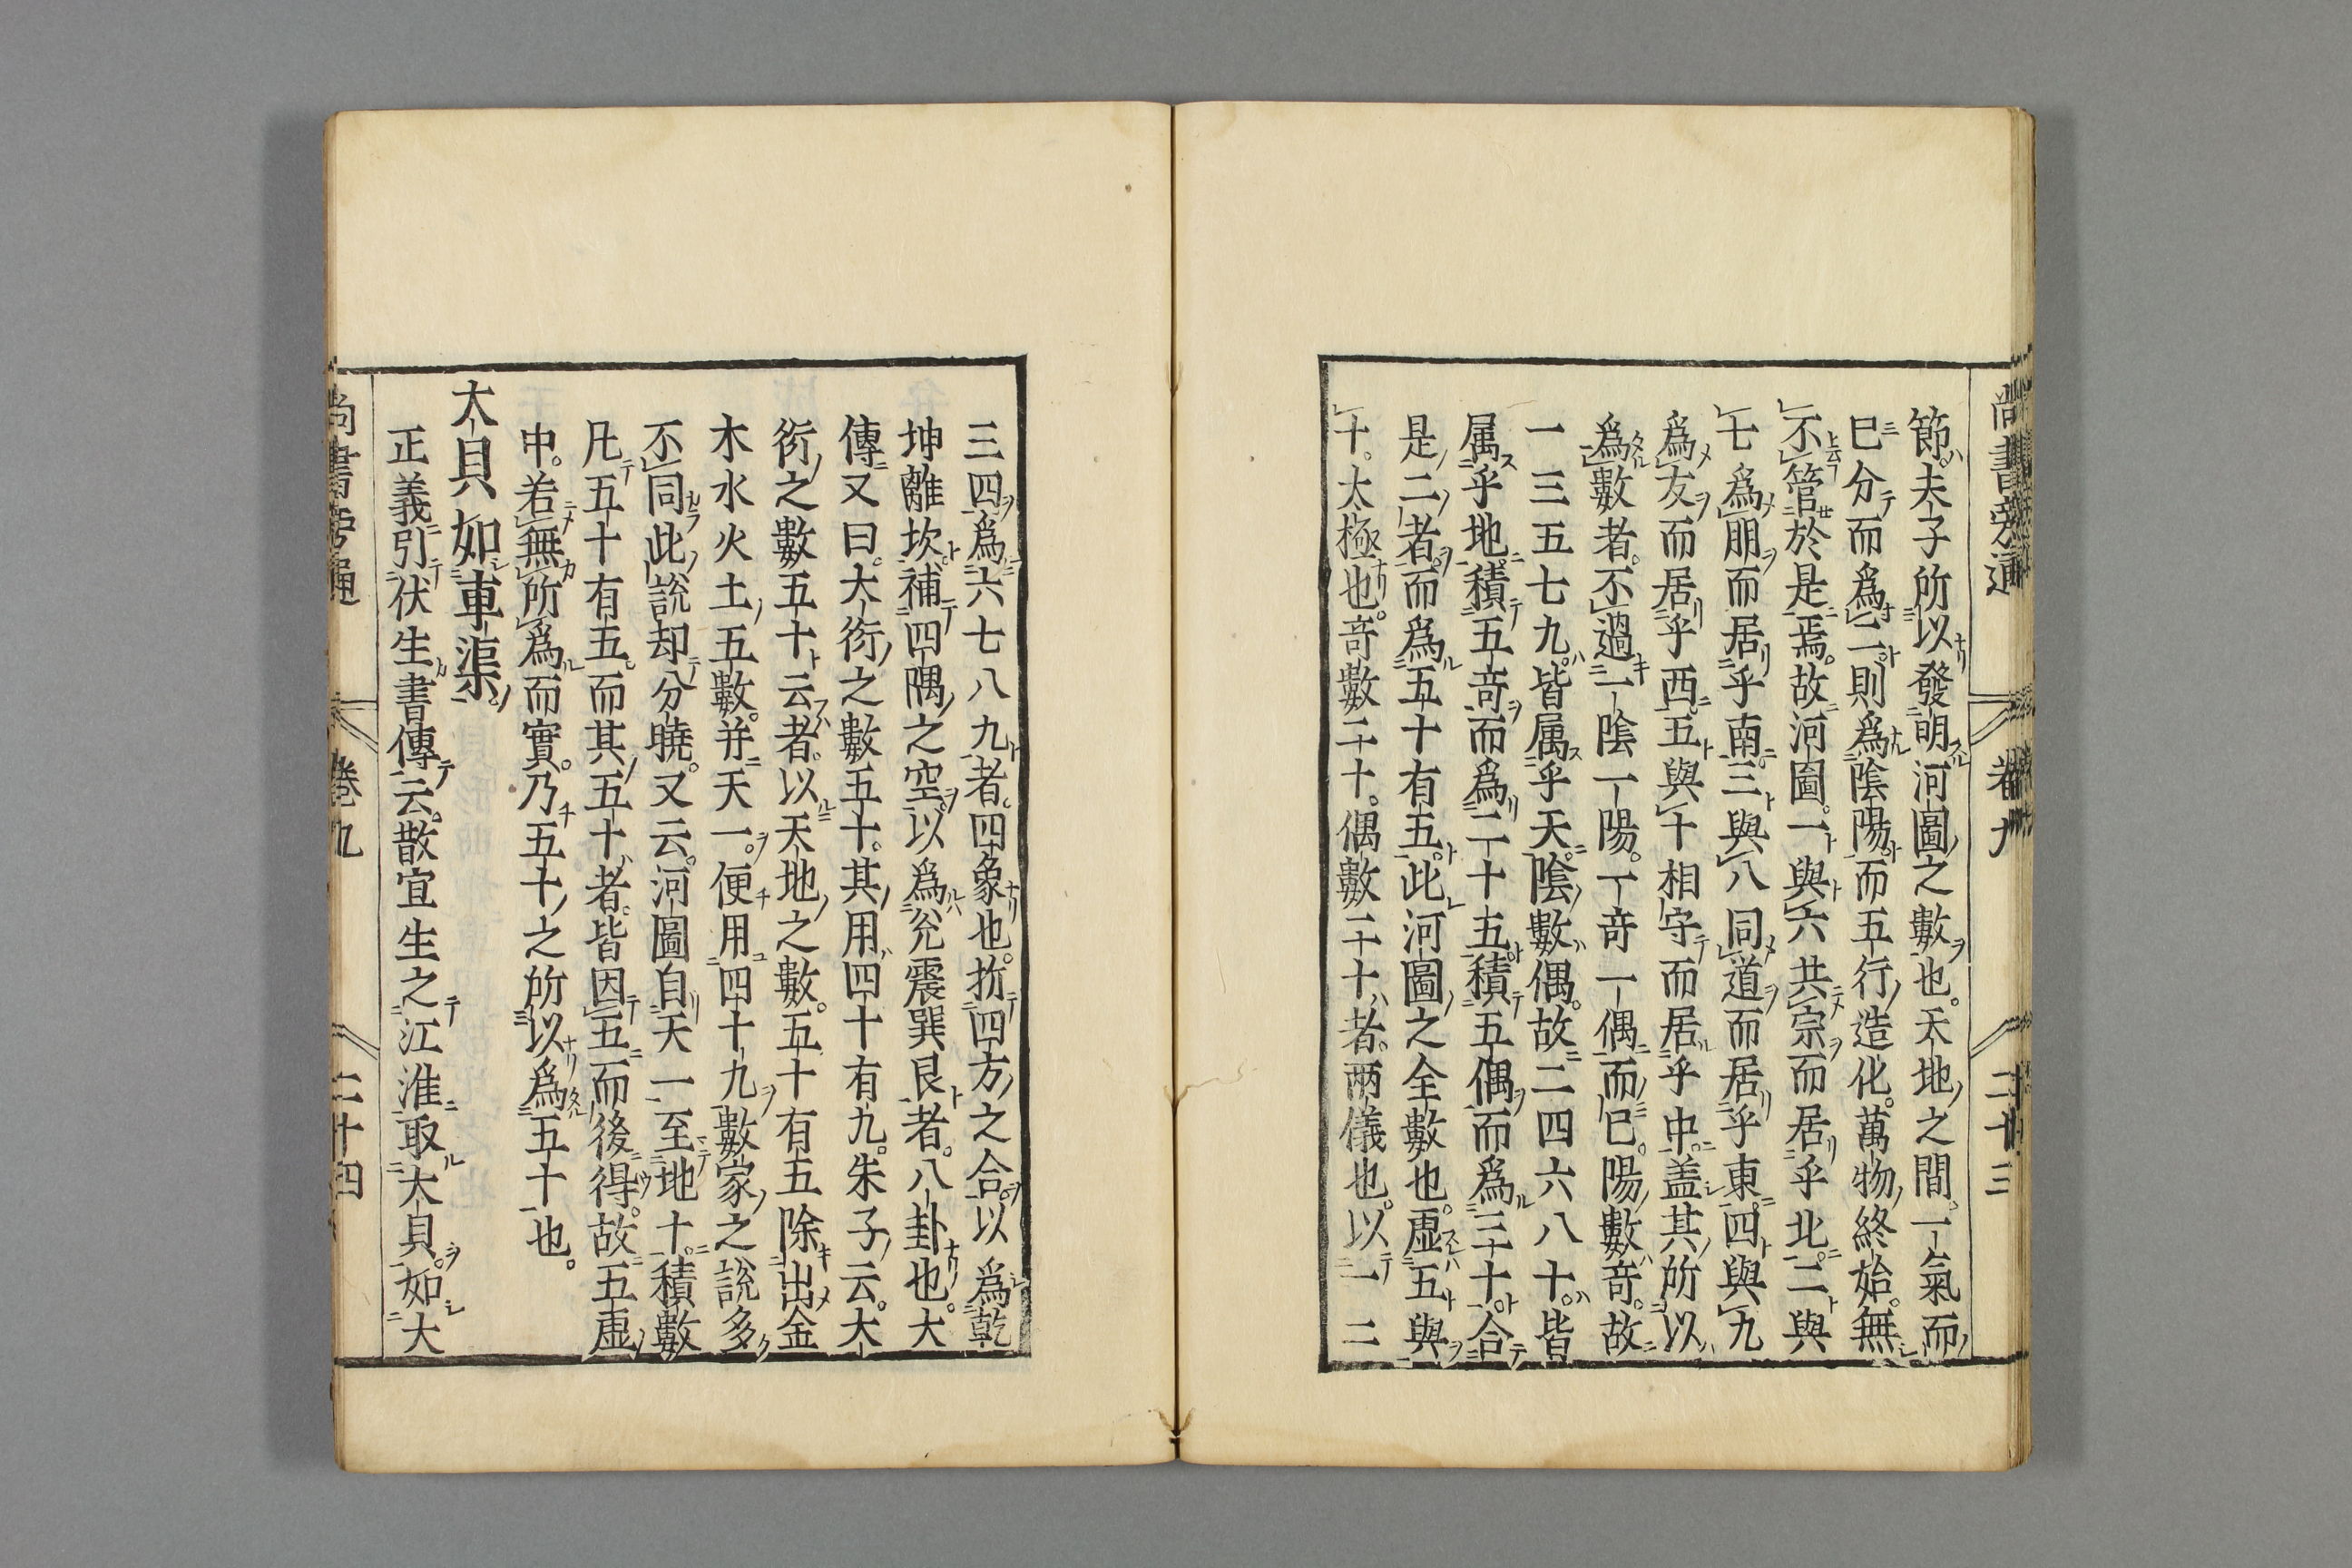 尚書旁通　卷九　二十三
節夫子所以發明河圖之數也。天地之間。一氣而
已分而爲二則爲陰陽而五行造化。萬物終始。無
不管於是焉。故河圖。一與六共宗而居乎北。二與
七爲朋而居乎南。三與八同道而居乎東。四與九
爲友而居乎西。五與十相守而居乎中。盖其所以
爲數者。不過一陰一陽。一奇一偶而已。陽數奇。故
一三五七九。皆属乎天。陰數偶。故二四六八十。皆
属乎地。積五奇而爲二十五。積五偶而爲三十。合
是二者。而爲五十有五。此河圖之全數也。虛五與
十。太極也。奇數二十。偶數二十者。兩儀也。以一二
三四爲六七八九者。四象也。拆四方之合以爲乾
坤離坎。補四隅之空。以爲兊震巽艮者。八卦也。大
傳又曰。大衍之數五十。其用四十有九。朱子云。大
衍之數五十云者。以天地之數。五十有五除出金
木水火土五數。并天一。便用四十九數家之說多
不同此說却分曉。又云。河圖自天一至地十。積數
凡五十有五。而其五十者。皆因五而後得。故五虛
中。若無所爲而實。乃五十之所以爲五十也。
大貝如車渠。
正義引伏生書傳云。散宜生之江淮取大貝。如大
尚書旁通　卷九　二十四